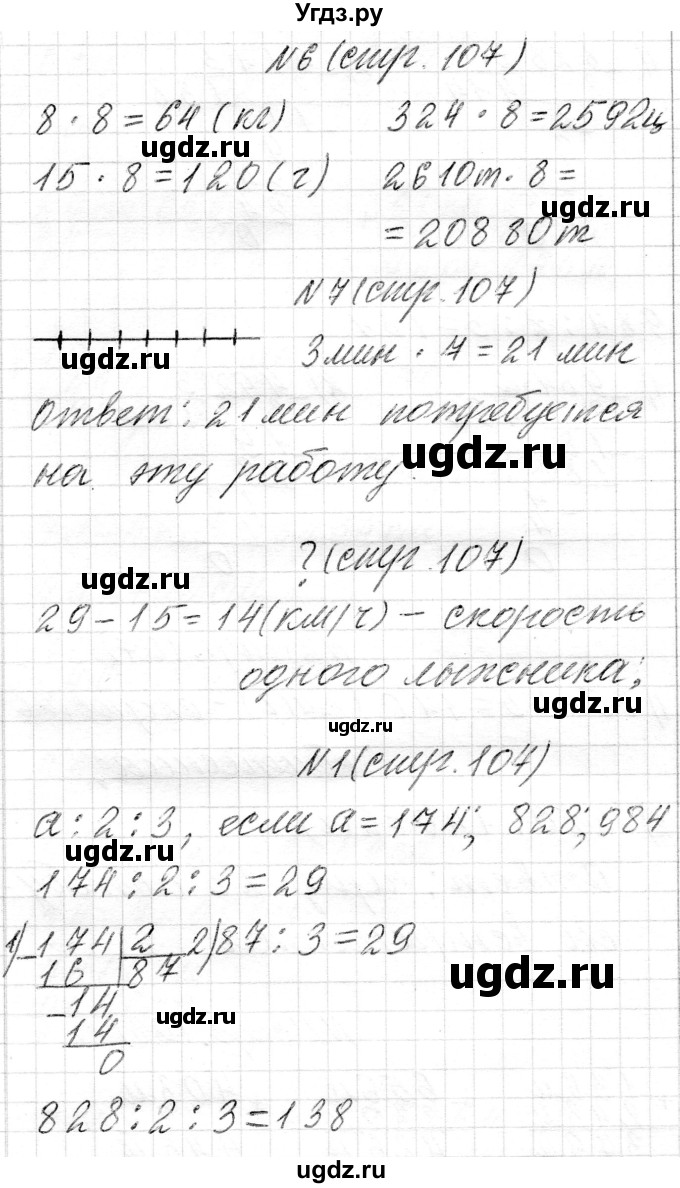 Угдз.ру
№6 (стр. 107)
8 · 8 = 64 (кг) 324 · 8 = 2592ц
ugdz.ru
15 · 8 = 120 (г) 2610т · 8 =
ugdz.ru
= 20880т
№7 (стр. 107)
ugdz.ru
3 мин · 7 = 21 мин
Ответ: 21 мин потребуется
ugdz.ru
на эту работу.
? (стр. 107)
ugdz.ru
29 - 15 = 14 (км/ч) - скорость
одного лыжника;
ugdz.ru
ugdz.ru
№1 (стр. 107)
а : 2 : 3, если а = 174; 828; 984
ugdz.ru
174 : 2 : 3 = 29
1) - 174 | 2 2) 87 : 3 = 29
16 87
ugdz.ru
- 14
ugdz.ru
14
0
828 : 2 : 3 = 138
ugdz.ru